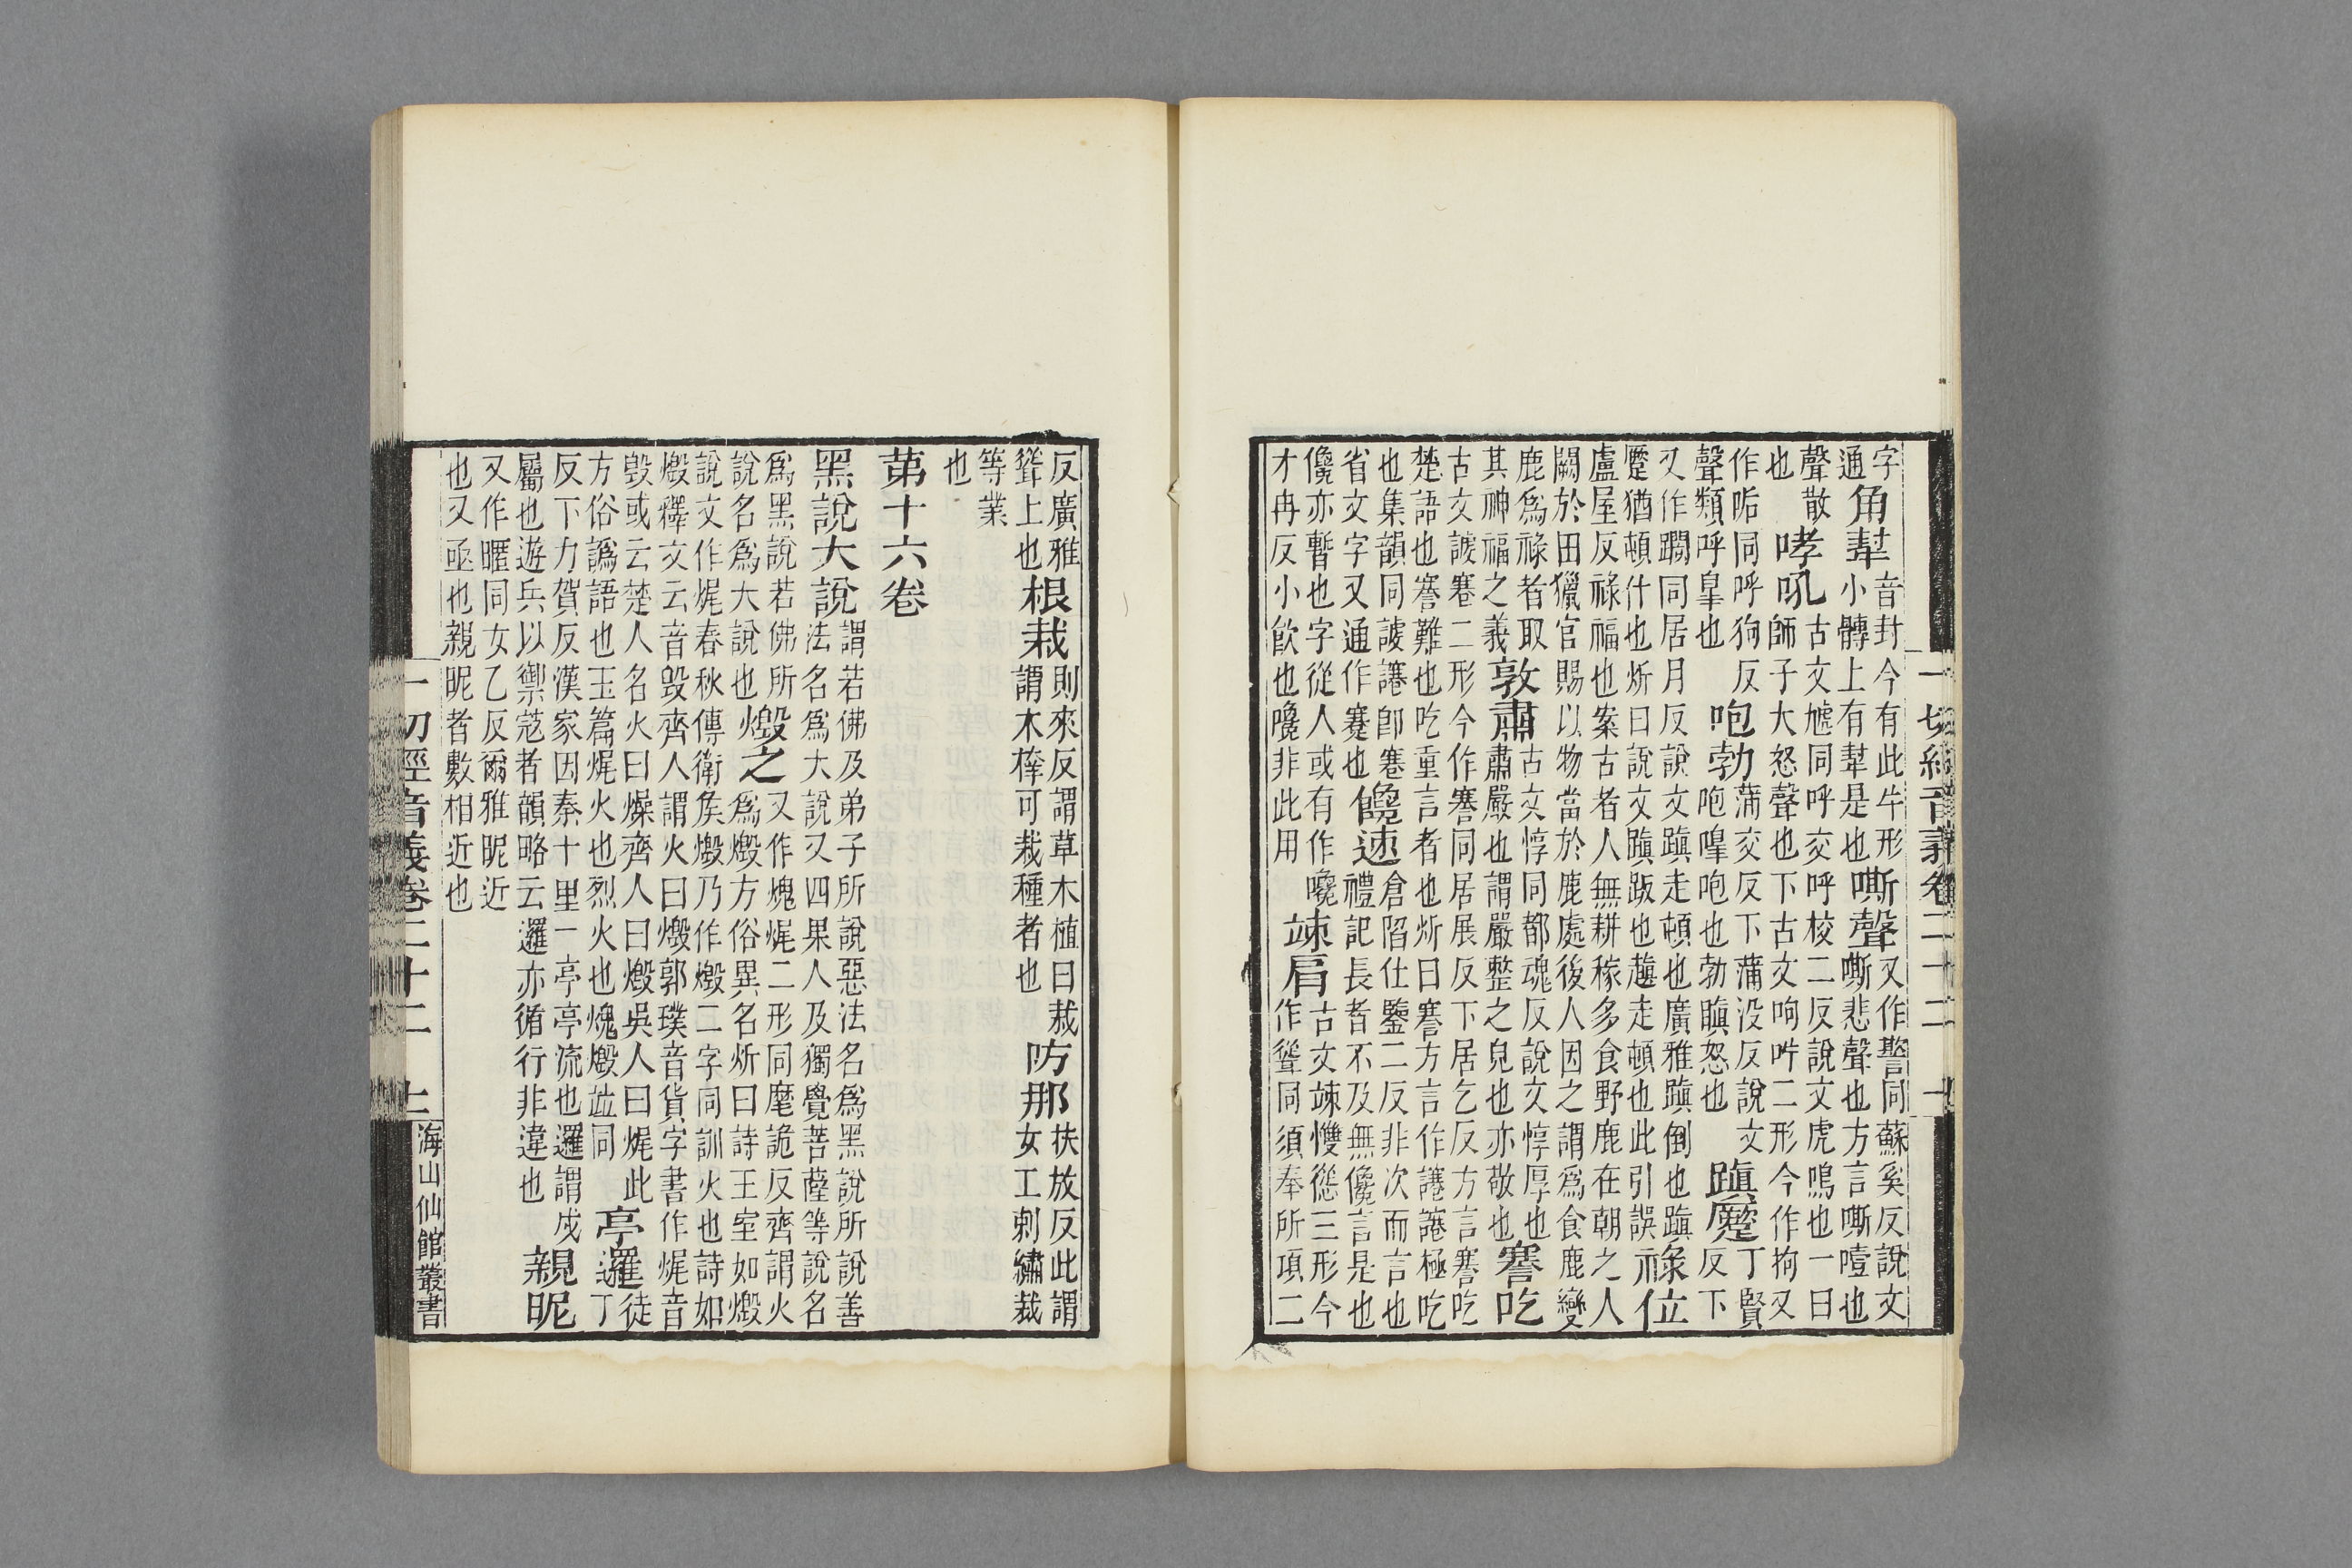 字
通
角犎
音封今有此牛形
小䯢上有犎是也
嘶聲
又作謺同蘇奚反說文
嘶悲聲也方言嘶噎也
聲散
也
哮吼
古文唬同呼交呼校二反說文虎鳴也一曰
師子大怒聲也下古文呴吽二形今作拘又
作垢同呼狗反
聲類呼皐也
咆勃
蒲交反下蒲没反說文
咆嘷咆也勃瞋怒也
蹎蹷
丁賢
反下
又作蹶同居月反說文蹎走頓也廣雅蹎倒也蹎
蹷猶頓什也炘曰說文蹎跋也趨走頓也此引誤
祿位
盧屋反祿福也案古者人無耕稼多食野鹿在朝之人
闕於田獵官賜以物當於鹿處後人因之謂爲食鹿變
鹿爲祿者取
其神福之義
敦肅
古文惇同都魂反說文惇厚也
肅嚴也謂嚴整之皃也亦敬也
謇吃
古文謇二形今作謇同居展反下居乞反方言謇吃
楚語也謇難也吃重言者也炘曰謇方言作極吃
也集韻同卽
省文字又通作蹇也
儳速
倉陷仕鑒二反非次而言也
禮記長者不及無儳言是也
儳亦暫也字從人或有作嚵
才冉反小飮也嚵非此用
竦肩
古文竦慫三形今
作聳同須奉所項二
一切經音義卷二十二
反廣雅
聳上也
根栽
則來反謂草木植曰栽
謂木榫可栽種者也
防那
扶放反此謂
女工刺繡裁
等業
也
第十六卷
黑說大說
謂若佛及弟子所說惡法名爲黑說所說善
法名爲大說又四果人及獨覺菩薩等說名
爲黑說若佛所
說名爲大說也
燬之
又作㷇㷄二形同麾詭反齊謂火
爲燬方俗異名炘曰詩王室如燬
說文作㷄春秋傳衛矦燬乃作燬二字同訓火也詩如
燬釋文云音毀齊人謂火曰燬郭璞音貨字書作㷄音
毀或云楚人名火曰燥齊人曰燬吳人曰㷄此
方俗譌語也玉篇㷄火也烈火也㷇燬並同
亭邏
徒丁
反下力賀反漢家因秦十里一亭亭流也邏謂戍
屬也遊兵以禦寇者韻略云邏亦循行非違也
親昵
又作暱同女乙反爾雅昵近
也又亟也親昵者數相近也
一切經音義卷二十二
海山仙館叢書